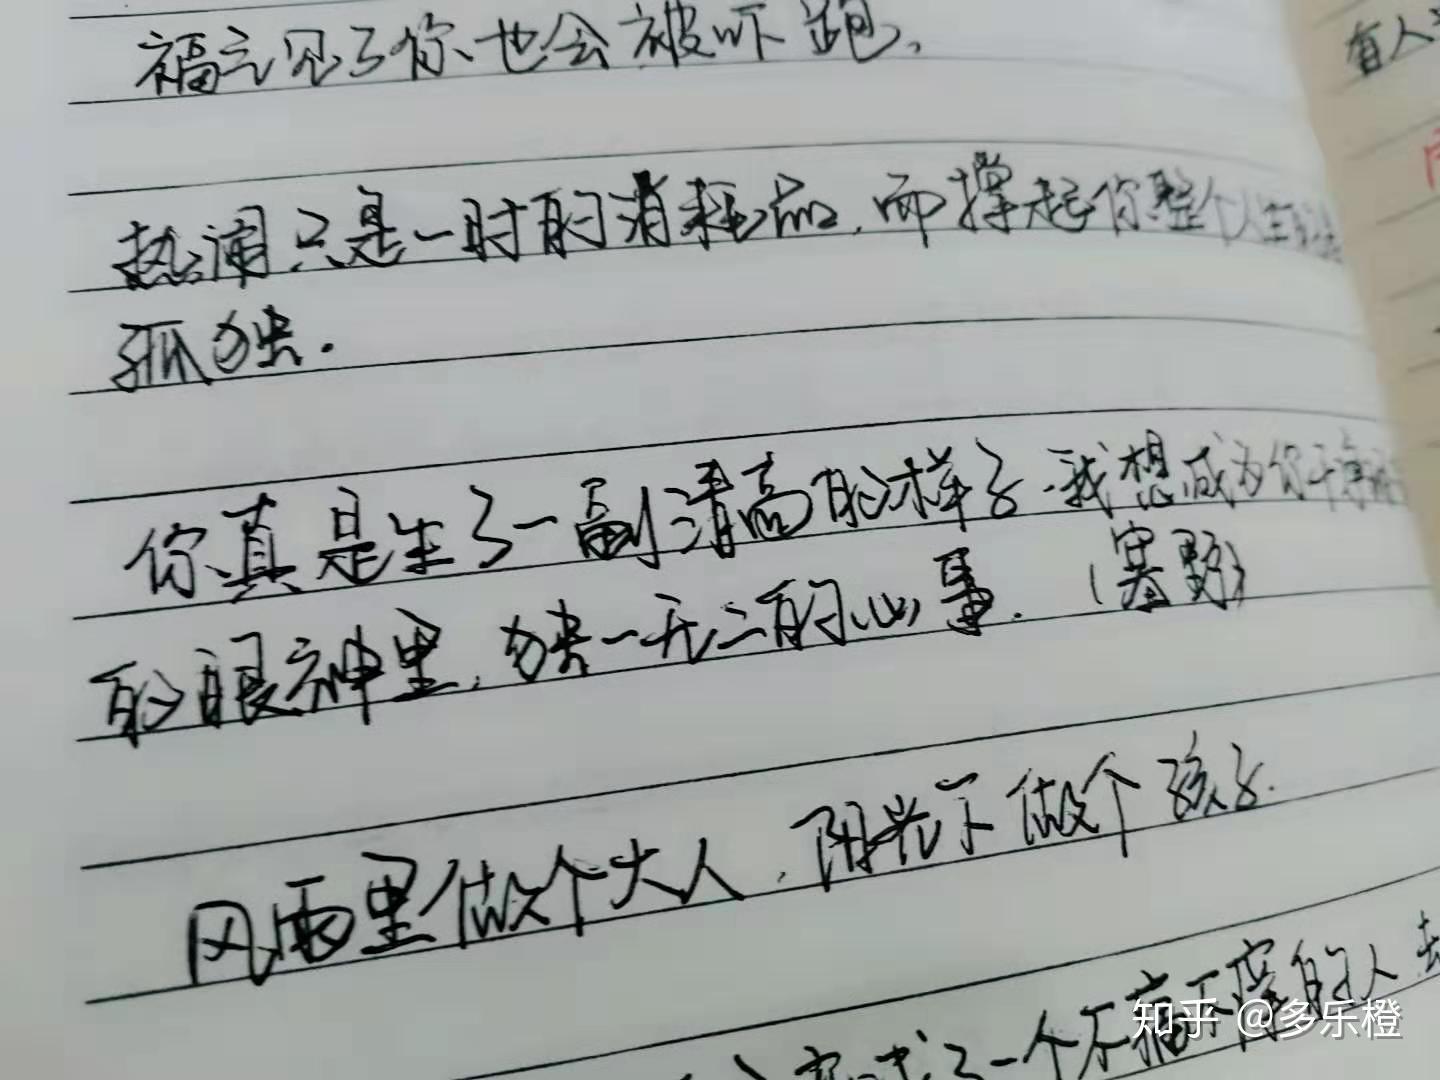 福气见了你也会被吓跑。
热闹只是一时的消耗品，而撑起你整个人生的是
孤独.
你真是生了一副清高的样子.我想成为你干净
的眼神里，独一无二的心事.（塞野）
风雨里做个大人，阳光下做个孩子.
了一个不痛不痒的人去
有人
知乎 @多乐橙